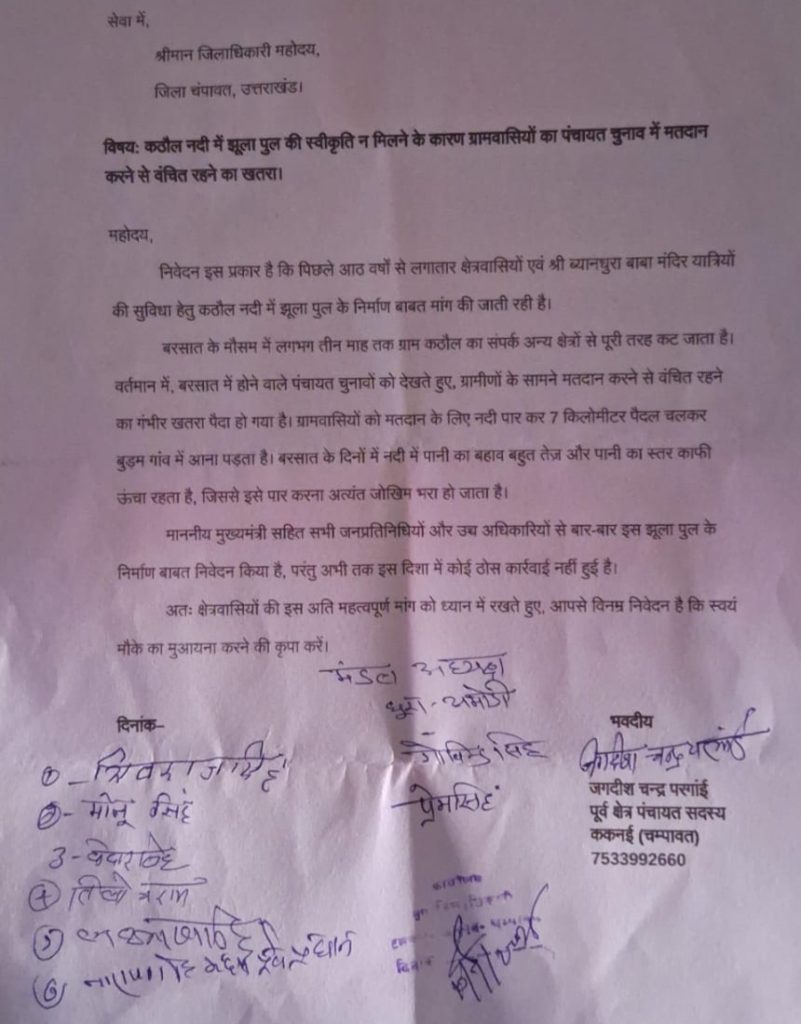 सेवा में,
श्रीमान जिलाधिकारी महोदय,
जिला चंपावत, उत्तराखंड।
विषय: कठौल नदी में झूला पुल की स्वीकृति न मिलने के कारण ग्रामवासियों का पंचायत चुनाव में मतदान
करने से वंचित रहने का खतरा।
महोदय,
निवेदन इस प्रकार है कि पिछले आठ वर्षो से लगातार क्षेत्रवासियों एवं श्री ब्यानधुरा बाबा मंदिर यात्रियों
की सुविधा हेतु कठौल नदी में झूला पुल के निर्माण बाबत मांग की जाती रही है।
बरसात के मौसम में लगभग तीन माह तक ग्राम कठौल का संपर्क अन्य क्षेत्रों से पूरी तरह कट जाता है।
वर्तमान में, बरसात में होने वाले पंचायत चुनावों को देखते हुए, ग्रामीणों के सामने मतदान करने से वंचित रहने
का गंभीर खतरा पैदा हो गया है। ग्रामवासियों को मतदान के लिए नदी पार कर 7 किलोमीटर पैदल चलकर
बुड़म गांव में आना पड़ता है। बरसात के दिनों में नदी में पानी का बहाव बहुत तेज़ और पानी का स्तर काफी
ऊंचा रहता है, जिससे इसे पार करना अत्यंत जोखिम भरा हो जाता है।
माननीय मुख्यमंत्री सहित सभी जनप्रतिनिधियों और उच्च अधिकारियों से बार-बार इस झूला पुल के
निर्माण बाबत निवेदन किया है, परंतु अभी तक इस दिशा में कोई ठोस कार्रवाई नहीं हुई है।
अतः क्षेत्रवासियों की इस अति महत्वपूर्ण मांग को ध्यान में रखते हुए, आपसे विनम्र निवेदन है कि स्वयं
मौके का मुआयना करने की कृपा करें।
मंडल अध्यक्ष
दिनांक–
भवदीय
गोविन्द सिंह
जगदीश चन्द्र परगांई
② - मोनू सिंह
प्रेमसिंह
पूर्व क्षेत्र पंचायत सदस्य
ककनई (चम्पावत)
7533992660
3 -
④
⑤
⑥